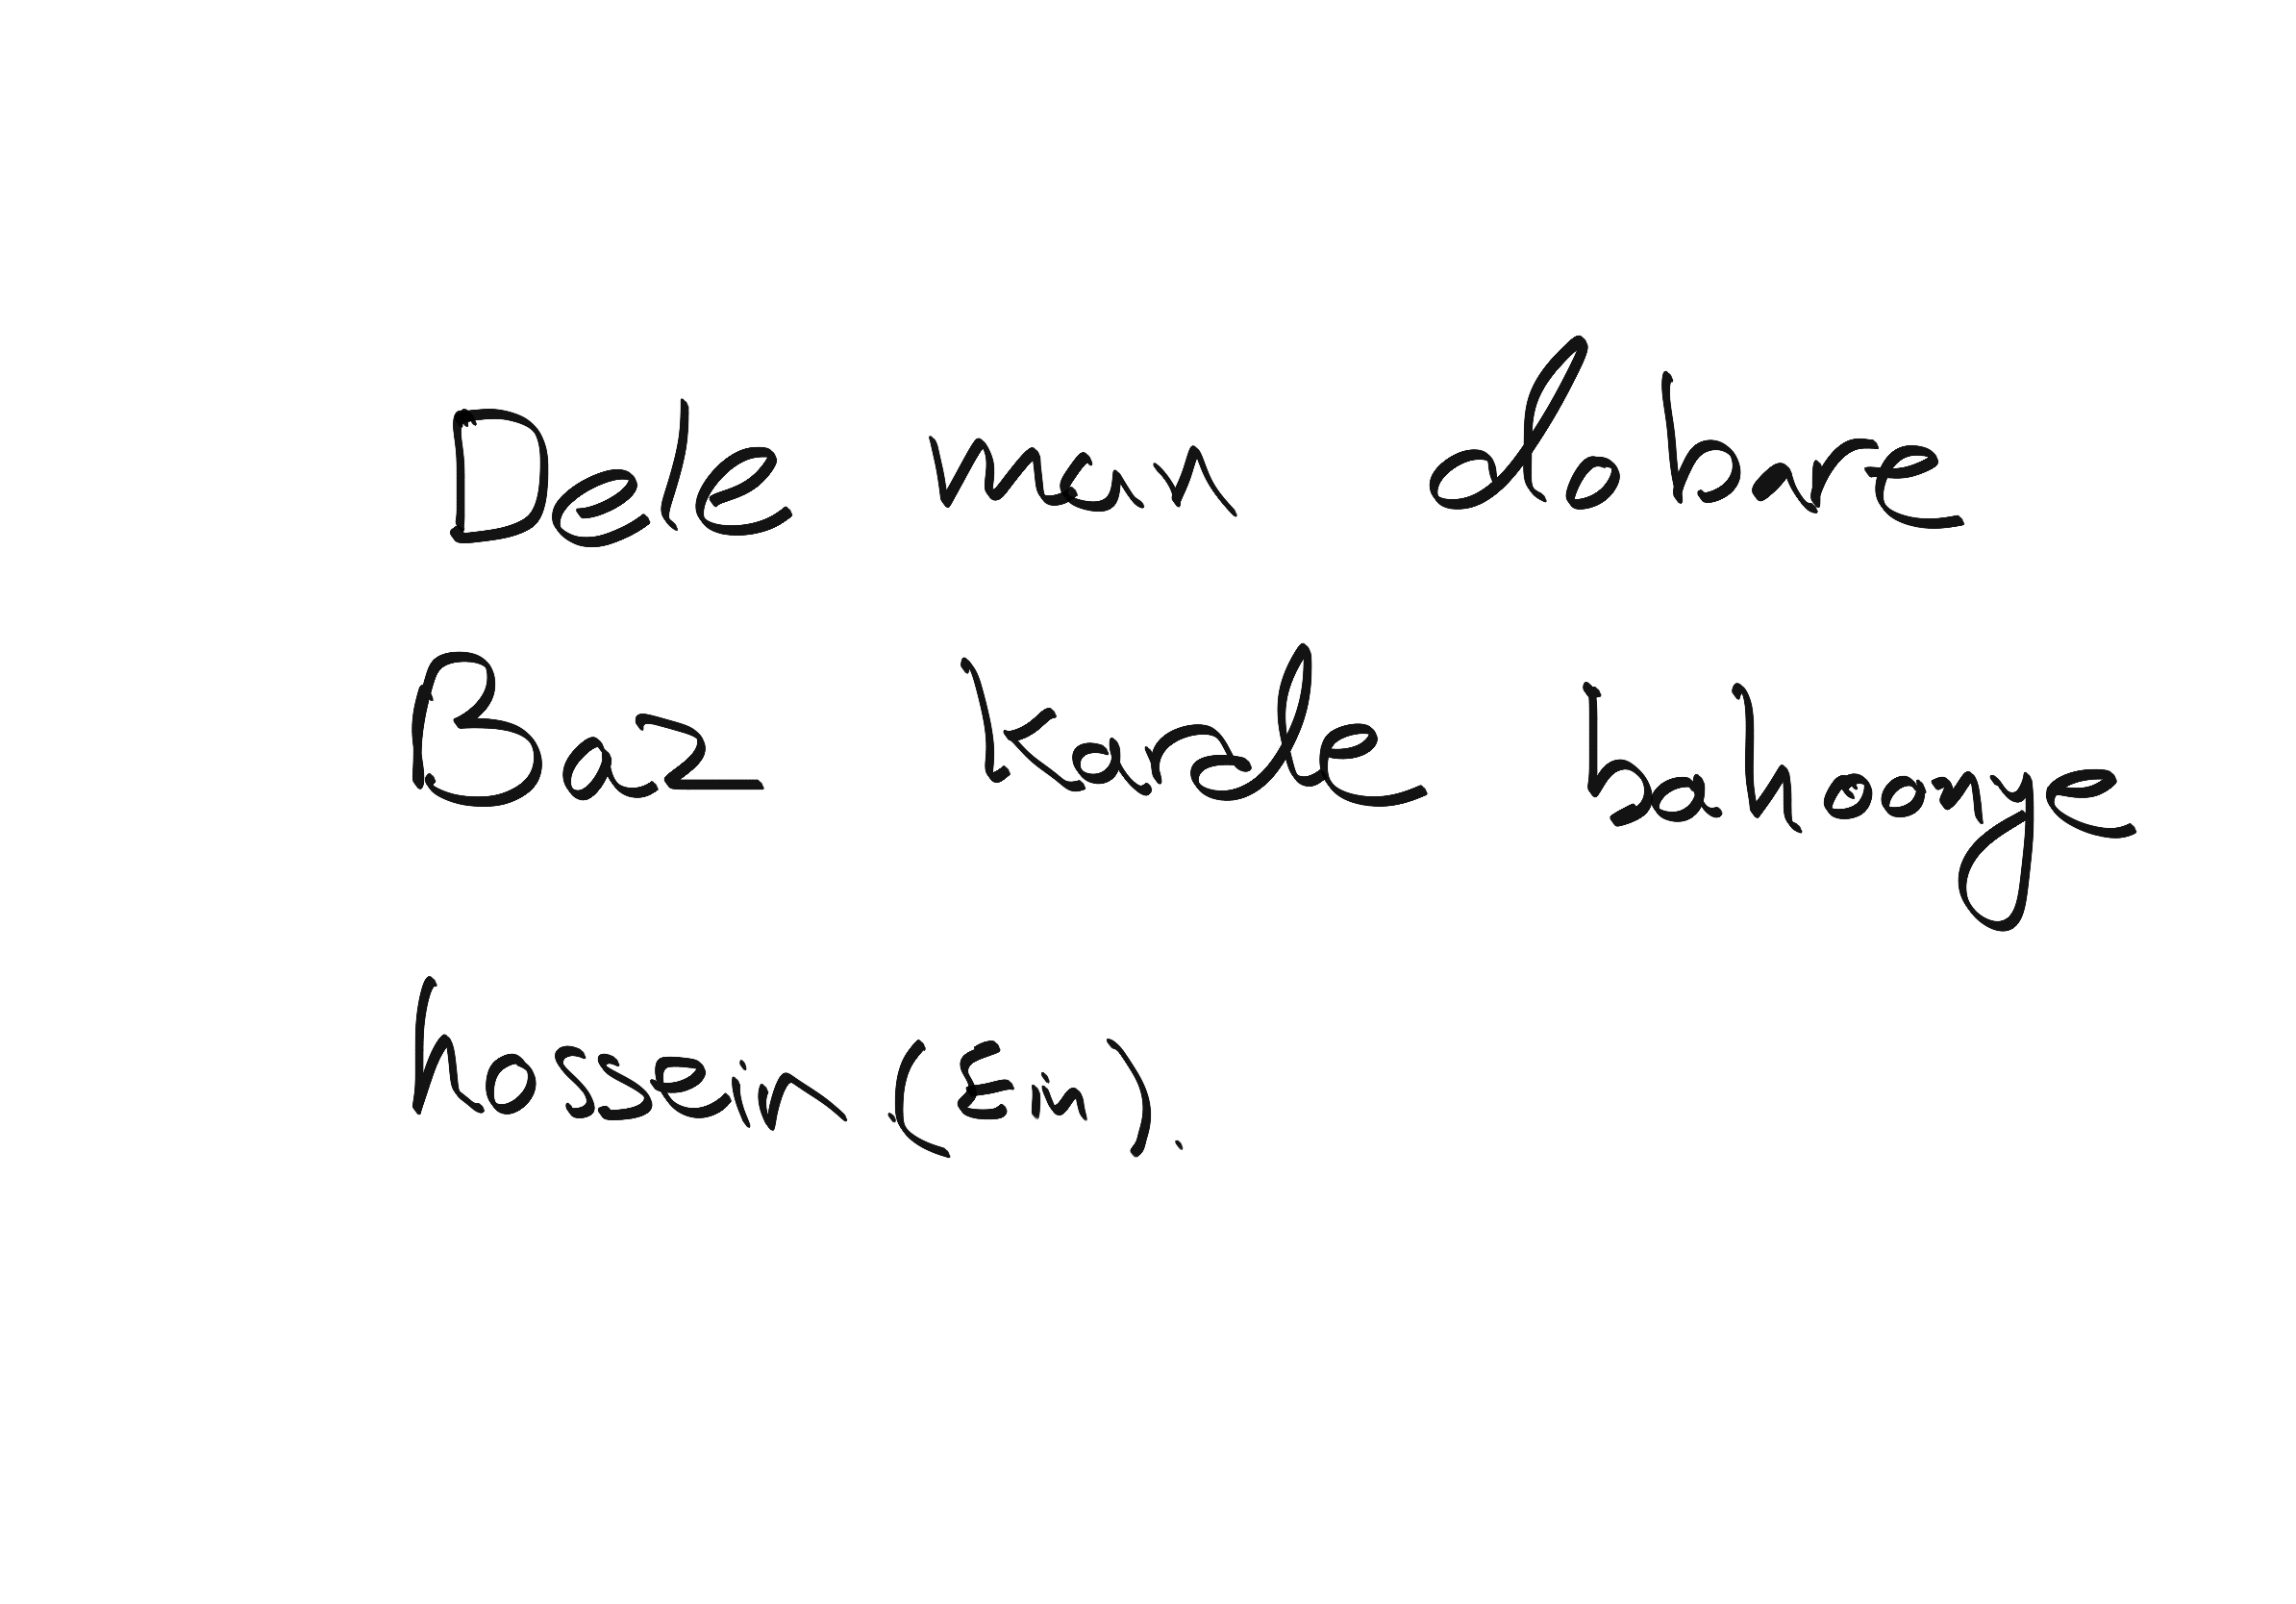 Dele man dobare
Baz Karde bahoonye
hossein (Ein).